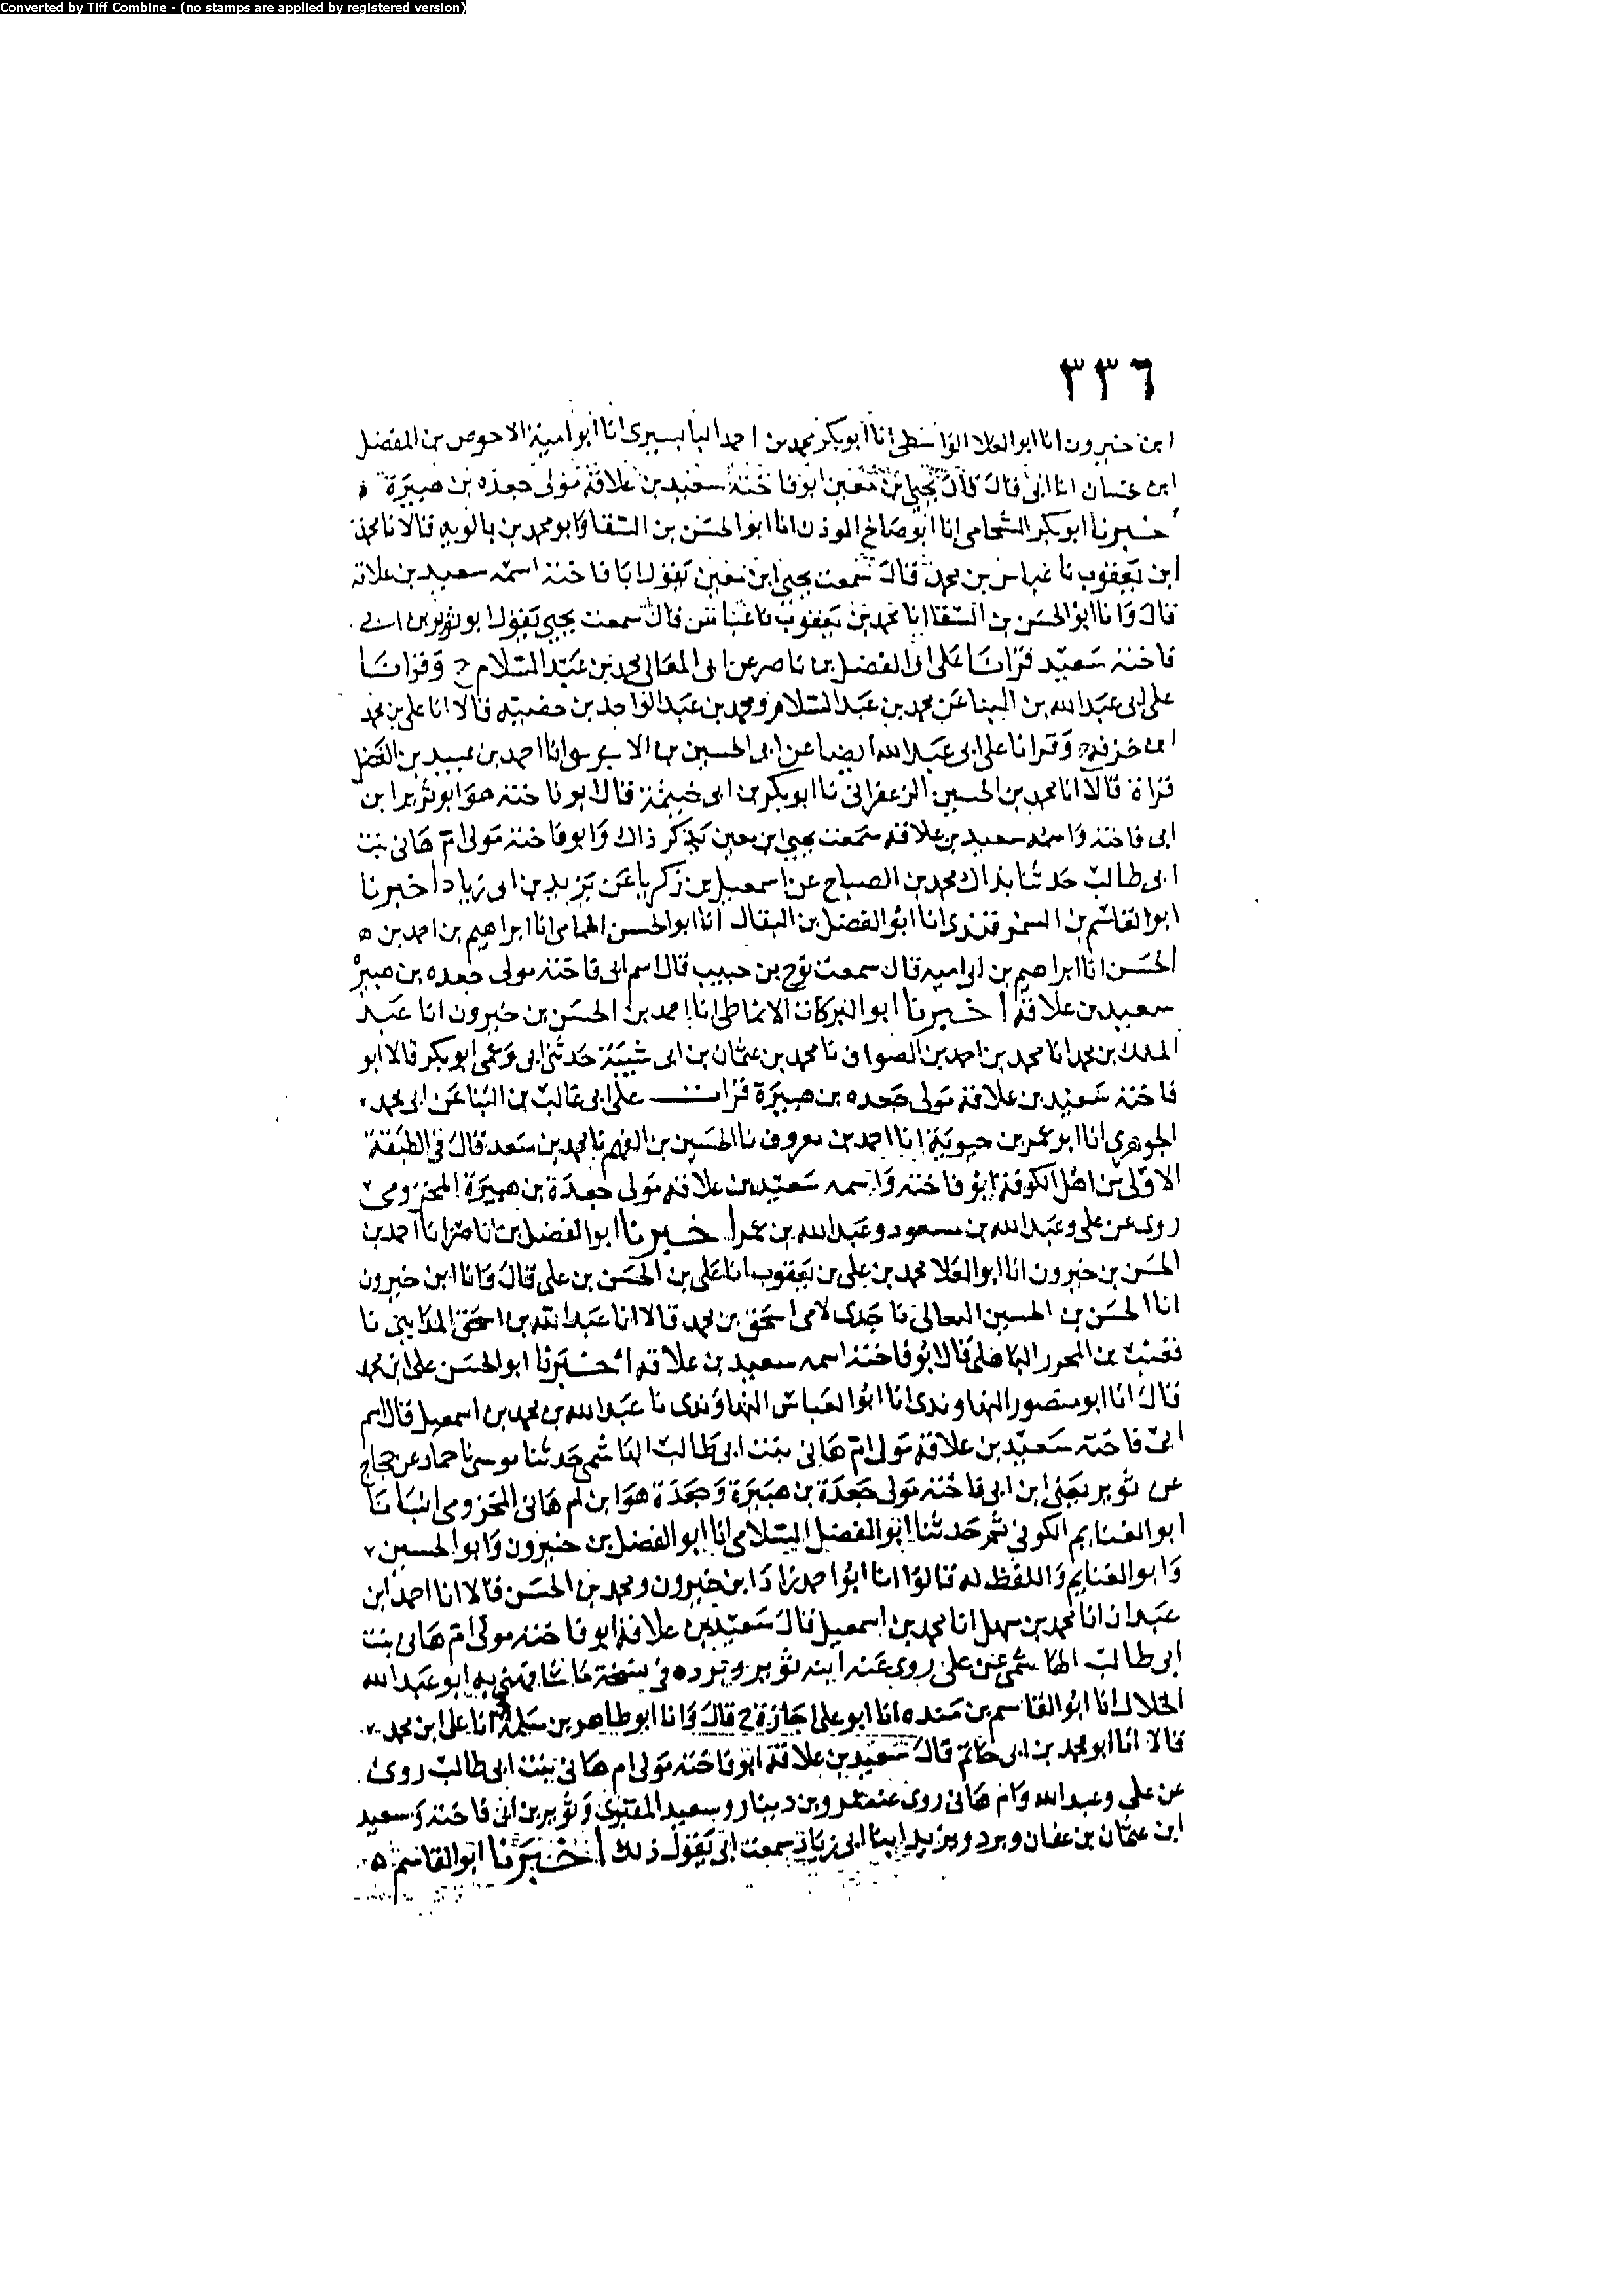 Converted by Tiff Combine - (no stamps are applied by registered version)
٣٣٦
ابن خيرون انا ابو العلا الواسطى انا ابو بكر محمد بن احمد البابسيرى انا ابو امية الاحوص بن المفضل
ابن غسان انا ابى قال قال يحيى بن معين ابو فاختة سعيد بن علاقة مولى جعده بن هبيرة
أخبرنا ابو بكر الشحامى انا ابو صالح الموذن انا ابو الحسن بن السقا وابو محمد بن بالويه قالا نا محمد
ابن يعقوب نا عباس بن محمد قال سمعت يحيى ابن معين يقول ابا فاختة اسمه سعيد بن علاقة
قال وانا ابو الحسن بن السقا انا محمد بن يعقوب نا عباس قال سمعت يحيى يقول ابو ثوير بن ابى
فاختة سعيد قرانا على ابى الفضل بن ناصر عن ابى المعالى محمد بن عبد السلام ح وقرانا
على ابى عبد الله بن البنا عن محمد بن عبد السلام ومحمد بن عبد الواحد بن قالا انا على بن محمد
ابن خزفة ح وقرانا على ابى عبد الله ايضا عن ابى الحسين بن الابنوسى انا احمد بن عبيد بن الفضل
قراة قالا انا محمد بن الحسين الزعفرانى نا ابو بكر بن ابى خيثمة قال ابو فاختة هو ابو ثوير ابن
ابى فاختة واسمه سعيد بن علاقة سمعت يحيى ابن معين يذكر ذاك وابو فاختة مولى ام هانى بنت
ابى طالب حدثنا بذاك محمد بن الصباح عن اسمعيل بن زكريا عن يزيد بن ابى زياد اخبرنا
ابو القاسم بن السمرقندى انا ابو الفضل بن البقال انا ابو الحسن الحمامى انا ابراهيم بن احمد بن ه
الحسن انا ابراهيم بن ابى امية قال سمعت نوح بن حبيب قال اسم ابى فاختة مولى جعده بن هبيرة
سعيد بن علاقة اخبرنا ابو البركات الانماطى انا احمد بن الحسن بن خيرون انا عبد
الملك بن محمد انا محمد بن احمد بن الصواف نا محمد بن عثمان بن ابى شيبة حدثنى ابى وعمى ابو بكر قالا ابو
فاختة سعيد بن علاقة مولى جعده بن هبيرة قرات على ابى غالب بن البنا عن ابى محمد
الجوهرى انا ابو عمر بن حيوية انا احمد بن معروف نا الحسين بن الفهم نا محمد بن سعد قال فى الطبقة
الاولى من اهل الكوفة ابو فاختة واسمه سعيد بن علاقة مولى جعدة بن هبيرة المخزومى
روى عن على وعبد الله بن مسعود وعبد الله بن عمر اخبرنا ابو الفضل بن ناصر انا احمد بن
الحسن بن خيرون انا ابو العلا محمد بن على بن يعقوب انا على بن الحسن بن على قال وانا ابن خيرون
انا الحسن بن الحسين النعالى نا جدى لامى اسحق بن محمد قالا انا عبد الله بن اسحق المداينى نا
قعنب بن المحرر الباهلى قال ابو فاختة اسمه سعيد بن علاقة اخبرنا ابو الحسن على ابن محمد
قال انا ابو منصور النهاوندى انا ابو العباس النهاوندى نا عبد الله بن محمد بن اسمعيل قال اسم
ابى فاختة سعيد بن علاقة مولى ام هانى بنت ابى طالب الهاشمى حدثنا موسى نا حماد عن حجاج
عن ثوير يعنى ابن ابى فاختة مولى جعدة بن هبيرة وجعدة هو ابن ام هانى المخزومى انبانا
ابو الغنايم الكوفى ثم حدثنا ابو الفضل السلامى انا ابو الفضل بن خيرون وابو الحسين
وابو الغنايم واللفظ له قالوا انا ابو احمد زاد ابن خيرون ومحمد بن الحسن قالا انا احمد ابن
عبدان انا محمد بن سهل انا محمد بن اسمعيل قال سعيد بن علاقة ابو فاختة مولى ام هانى بنت
ابى طالب الهاشمى عن على روى عنه ابنه ثوير وبرده فى نسخة ما شافهنى به ابو عبد الله
الخلال انا ابو القاسم بن منده انا ابو على اجازة ح قال وانا ابو طاهر بن سلمة انا على ابن محمد
قالا انا ابو محمد بن ابى حاتم قال سعيد بن علاقة ابو فاختة مولى ام هانى بنت ابى طالب روى
عن على وعبد الله وام هانى روى عنه عمرو بن دينار وسعيد المقبرى وثوير بن ابى فاختة وسعيد
ابن عثمان بن عفان وبرد ويزيد ابنا ابى زياد سمعت ابى يقول ذلك اخبرنا ابو القاسم ه